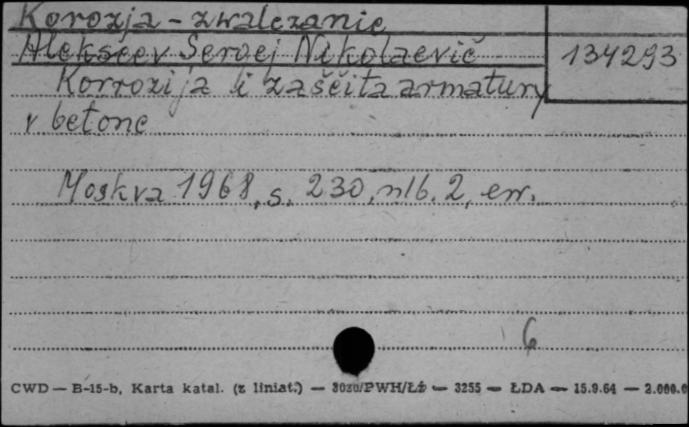 Korozja - zwalczanie
Alekseev Sergej Nikolaevič
134293
Korrozija i zaščita armatury
v betone
Moskva 1968, s. 230, nlb. 2, err.
6
CWD — B-15-b, Karta katal. (z liniat.) — /PWH/Łż — 3255 — ŁDA — 15.9.64 — 2.000.0